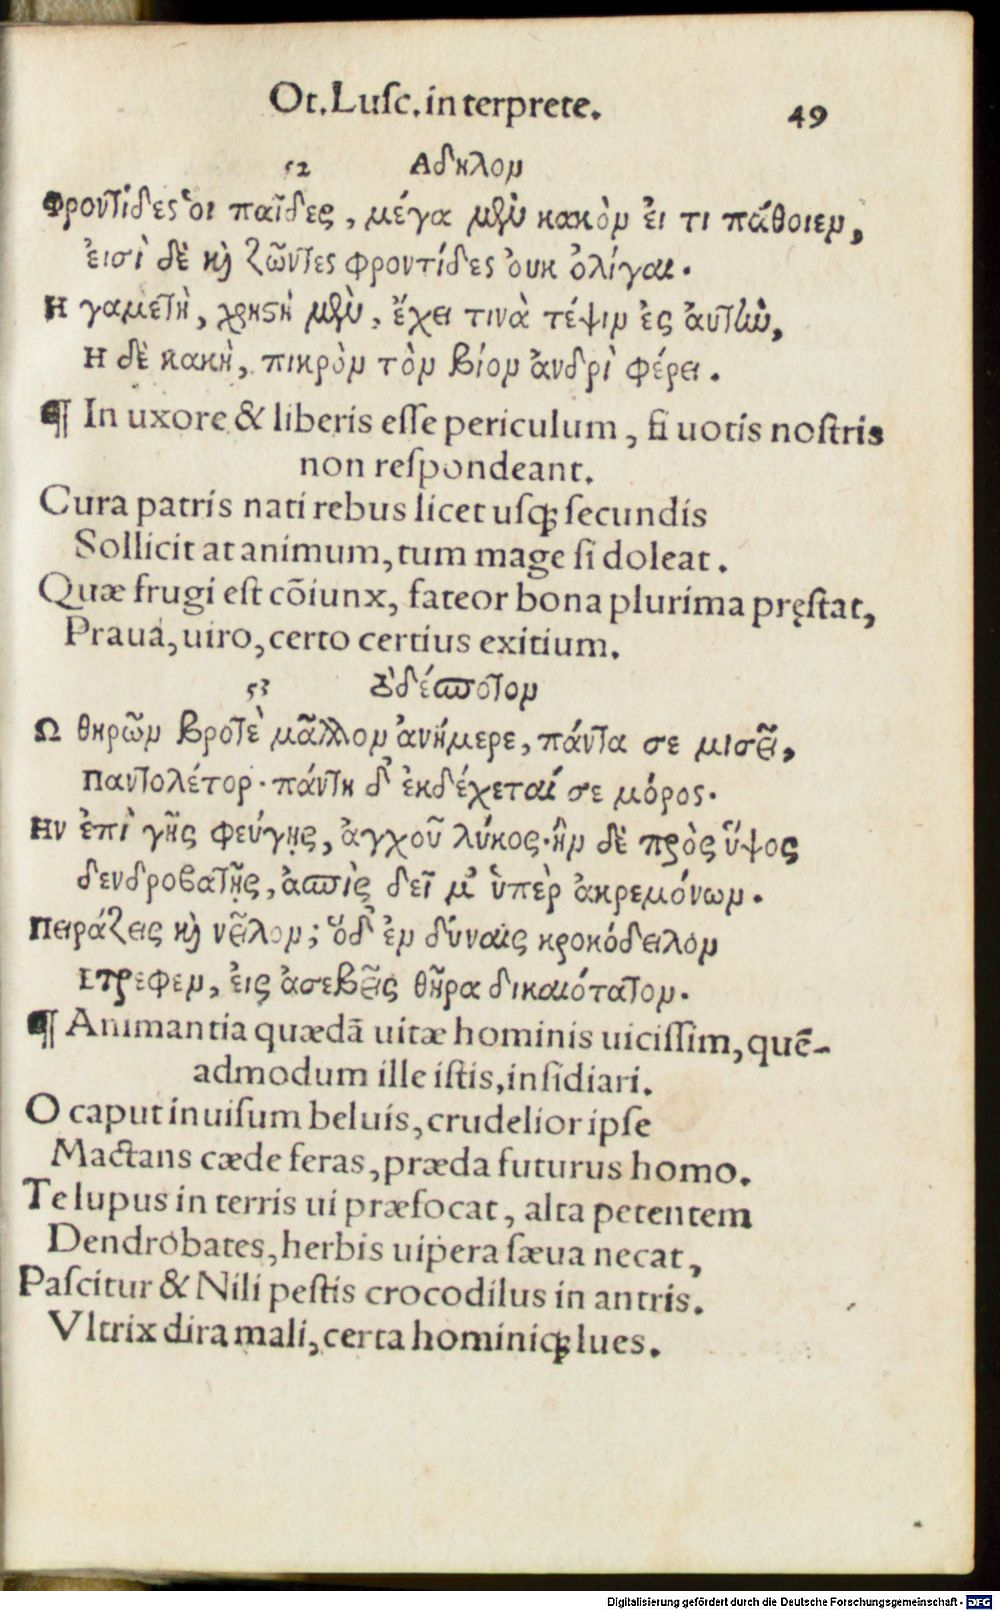 Ot. Lusc. interprete. 49
52 Αδηλον
Φροντίδες ὁι παῖδες, μέγα μὲν κακὸν ἐι τι πάθοιεν,
ἐισὶ δὲ κỳ ζῶντες φροντίδες ὀυκ ὀλίγαι.
Η γαμετὴ, χρηστὴ μὲν, ἔχει τινὰ τέψιν ἐς ἀυτὼ,
Η δὲ κακὴ, πικρὸν τὸν βίον ἀνδρὶ φέρει.
¶ In uxore & liberis esse periculum, si uotis nostris
non respondeant.
Cura patris nati rebus licet usq; secundis
Sollicitat animum, tum mage si doleat.
Quæ frugi est cõiunx, fateor bona plurima pręstat,
Praua, uiro, certo certius exitium.
53 Ἀδέσποτον
Ω θηρῶν βροτὲ μᾶλλον ἀνήμερε, πάντα σε μισεῖ,
Παντολέτορ· πάντη δ' ἐκδέχεταί σε μόρος.
Ην ἐπὶ γῆς φεύγῃς, ἀγχοῦ λύκος· ἢν δὲ πρὸς ὕψος
δενδροβατῇς, ἀσπὶς δεῖ μ' ὑπὲρ ἀκρεμόνων.
Πειράζεις κỳ νεῖλον; ὅδ' ἐν δύναις κροκόδειλον
Ετρεφεν, ἐις ἀσεβεῖς θῆρα δικαιότατον.
¶ Animantia quædã uitæ hominis uicissim, quẽ-
admodum ille istis, insidiari.
O caput inuisum beluis, crudelior ipse
Mactans cæde feras, præda futurus homo.
Te lupus in terris ui præfocat, alta petentem
Dendrobates, herbis uipera sæua necat,
Pascitur & Nili pestis crocodilus in antris.
Vltrix dira mali, certa hominiq; lues.
Digitalisierung gefördert durch die Deutsche Forschungsgemeinschaft - DFG